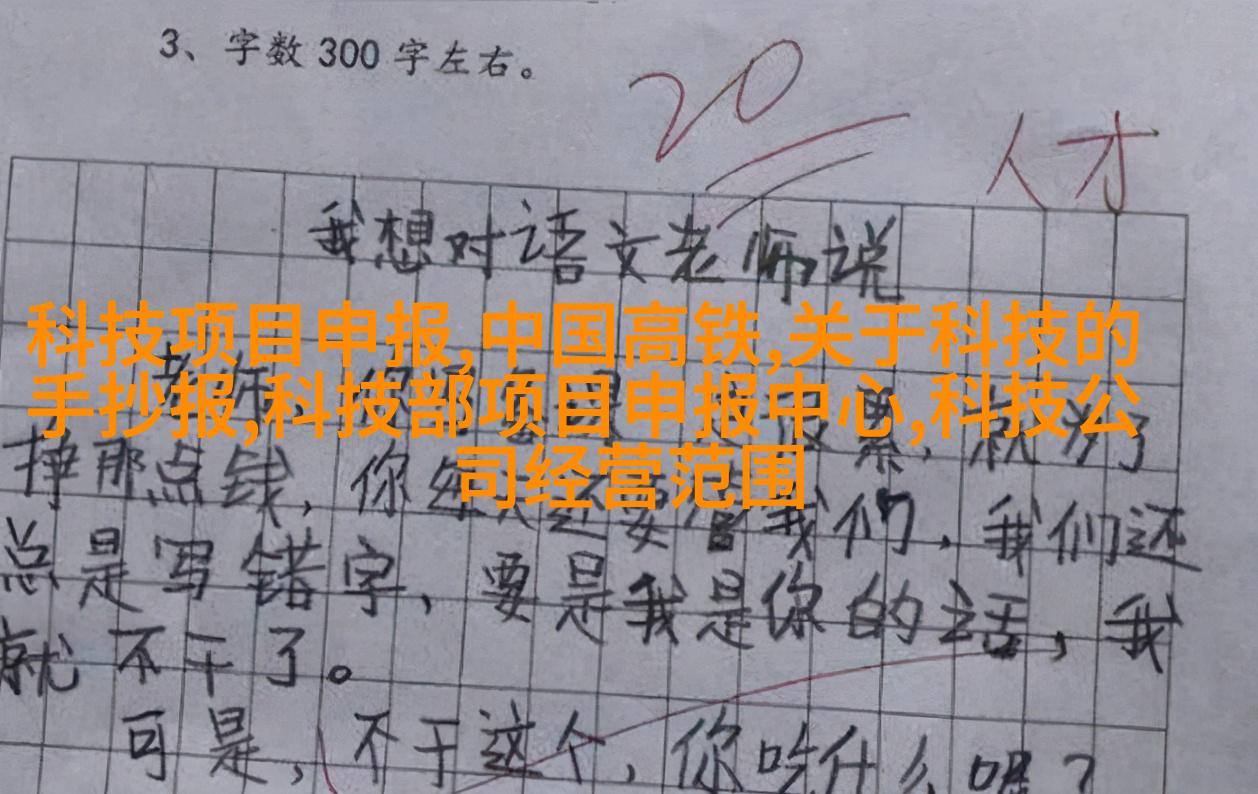 3、字数300字左右。
20
人才
我想对语文老师说
科技项目申报,中国高铁,关于科技的
手抄报,科技部项目申报中心,科技公
司经营范围
累,就为了
挣那点钱,你
我们,我们还
总是写错字,要是我是你的话,我
就不干了。
可是,不干这个,你吃什么呢?